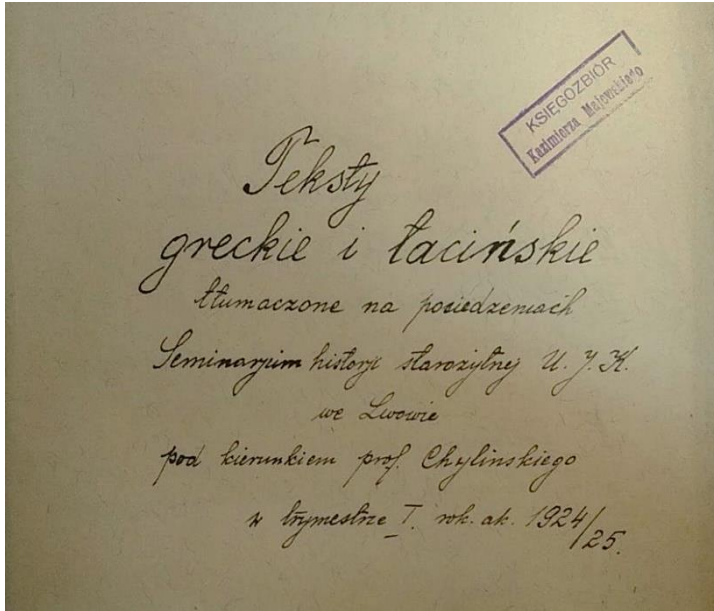 KSIĘGOZBIÓR
Kazimierza Majewskiego
Teksty
greckie i łacińskie
tłumaczone na posiedzeniach
Seminarjum historji starożytnej U. J. K.
we Lwowie
pod kierunkiem prof. Chylinskiego
w trymestrze I. rok. ak. 1924/25.